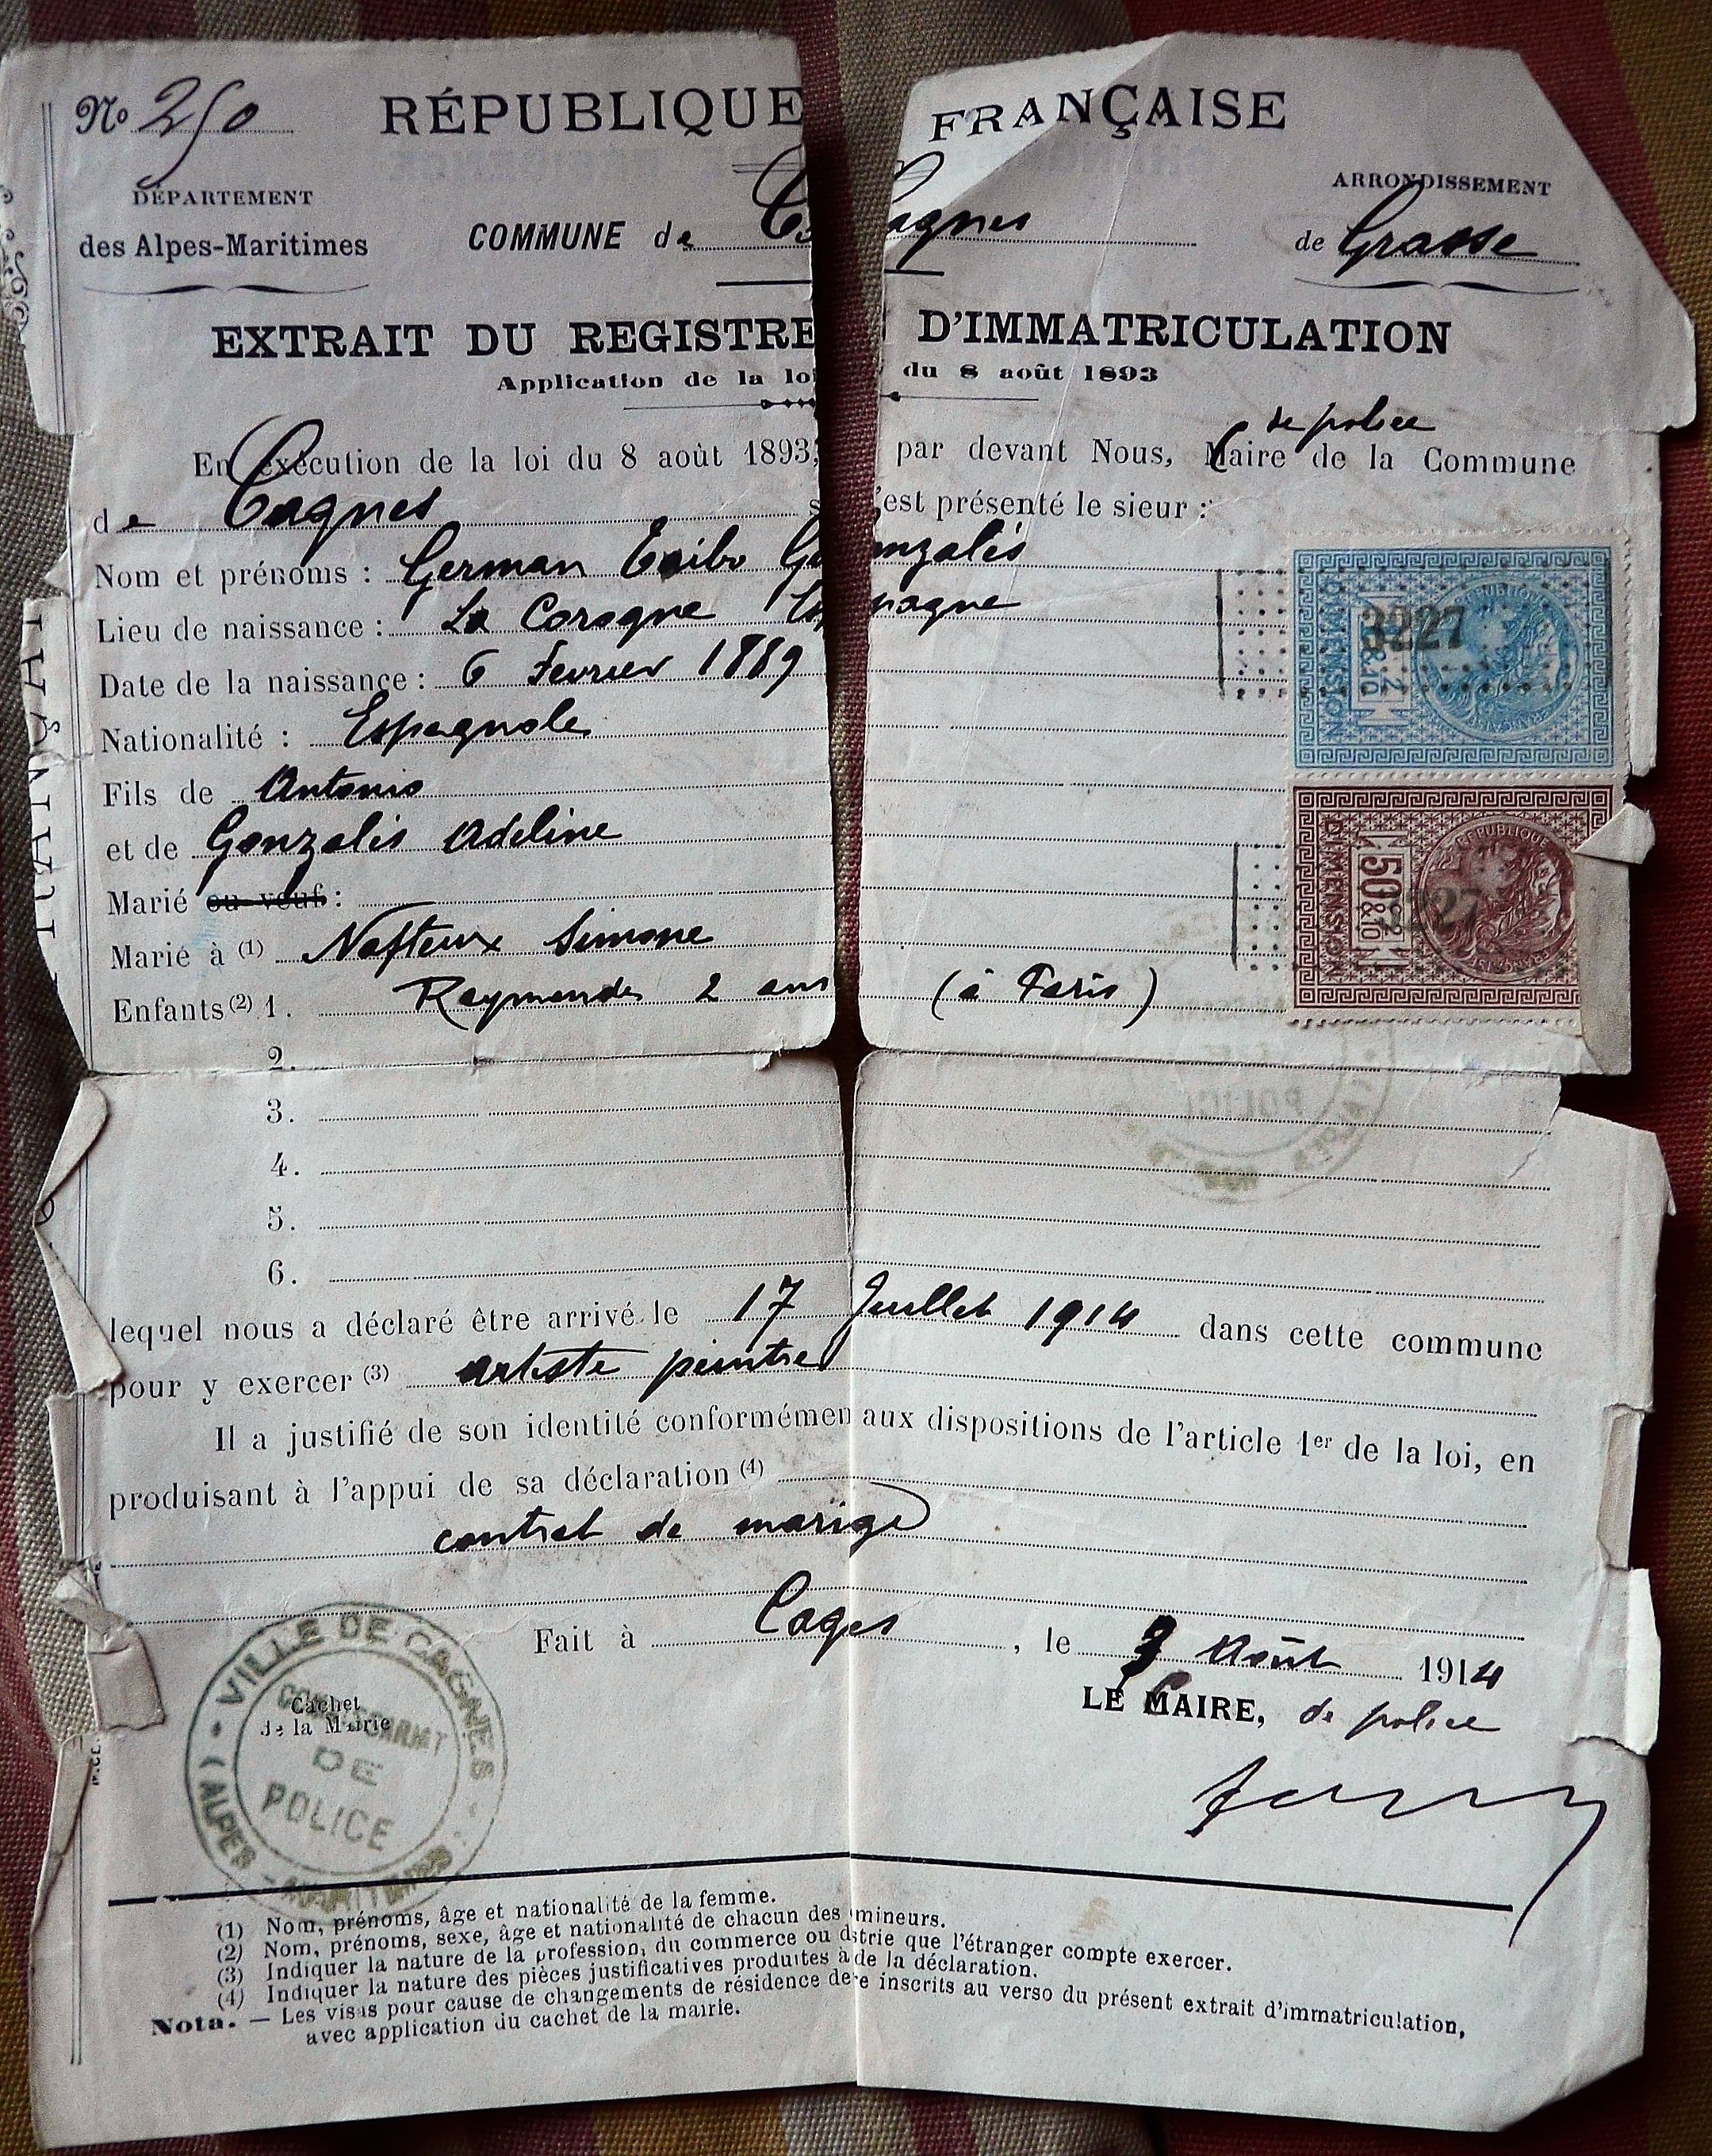 No 250 RÉPUBLIQUE FRANÇAISE
DÉPARTEMENT ARRONDISSEMENT
des Alpes-Maritimes COMMUNE de Cagnes de Grasse
EXTRAIT DU REGISTRE D'IMMATRICULATION
Application de la loi du 8 août 1893
de police
En exécution de la loi du 8 août 1893, par devant Nous, Maire de la Commune
de Cagnes s'est présenté le sieur :
Nom et prénoms : German Taibo Gonzalès
Lieu de naissance : La Corogne Espagne
Date de la naissance : 6 Fevrier 1889
Nationalité : Espagnole
Fils de Antonio
et de Gonzalès Adeline
Marié ou veuf :
Marié à (1) Nafteux Simone
Enfants (2) 1. Raymonde 2 ans (à Paris)
2.
3.
4.
5.
6.
lequel nous a déclaré être arrivé le 17 Juillet 1914 dans cette commune
pour y exercer (3) artiste peintre
Il a justifié de son identité conformémen aux dispositions de l'article 1er de la loi, en
produisant à l'appui de sa déclaration (4)
contrat de marige
Fait à Cages, le 3 Août 1914
LE MAIRE, de police
Cachet
de la Mairie
VILLE DE CAGNES
COMMISSARIAT
DE
POLICE
(ALPES-MARITIMES)
3227
DIMENSION
2/10
RÉPUBLIQUE FRANÇAISE
3227
DIMENSION
50c
2/10
RÉPUBLIQUE FRANÇAISE
(1) Nom, prénoms, âge et nationalité de la femme.
(2) Nom, prénoms, sexe, âge et nationalité de chacun des mineurs.
(3) Indiquer la nature de la profession, du commerce ou dstrie que l'étranger compte exercer.
(4) Indiquer la nature des pièces justificatives produites à de la déclaration.
Nota. — Les visas pour cause de changements de résidence de e inscrits au verso du présent extrait d'immatriculation,
avec application du cachet de la mairie.